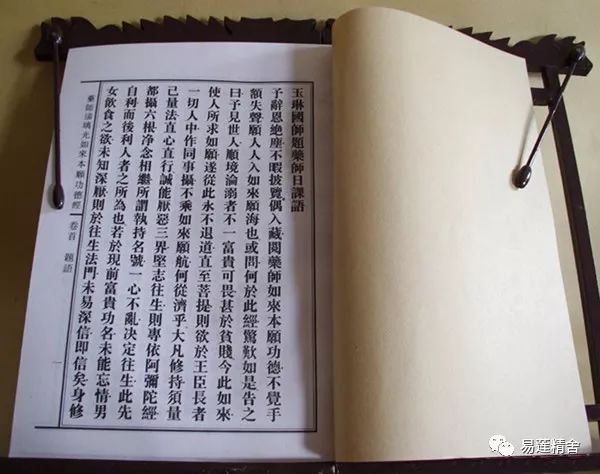 玉琳國師題藥師日課語
予辭恩絶塵不暇披覽偶入藏閱藥師如來本願功德不覺手
額失聲願人人入如來願海也或問何於此經驚歎如是告之
曰予見世人順境淪溺者不一富貴可畏甚於貧賤今此如來
使人所求如願遂從此永不退道直至菩提則欲於王臣長者
一切人中作同事攝不乘如來願航何從濟乎大凡修持須量
己量法直心直行誠能厭惡三界堅志往生則專依阿彌陀經
都攝六根淨念相繼所謂執持名號一心不亂決定往生此先
自利而後利人者之所為也若於現前富貴功名未能忘情男
女飲食之欲未知深厭則於往生法門未易深信即信矣身修
藥師瑠璃光如來本願功德經 卷首 題語 一
易蓮精舍